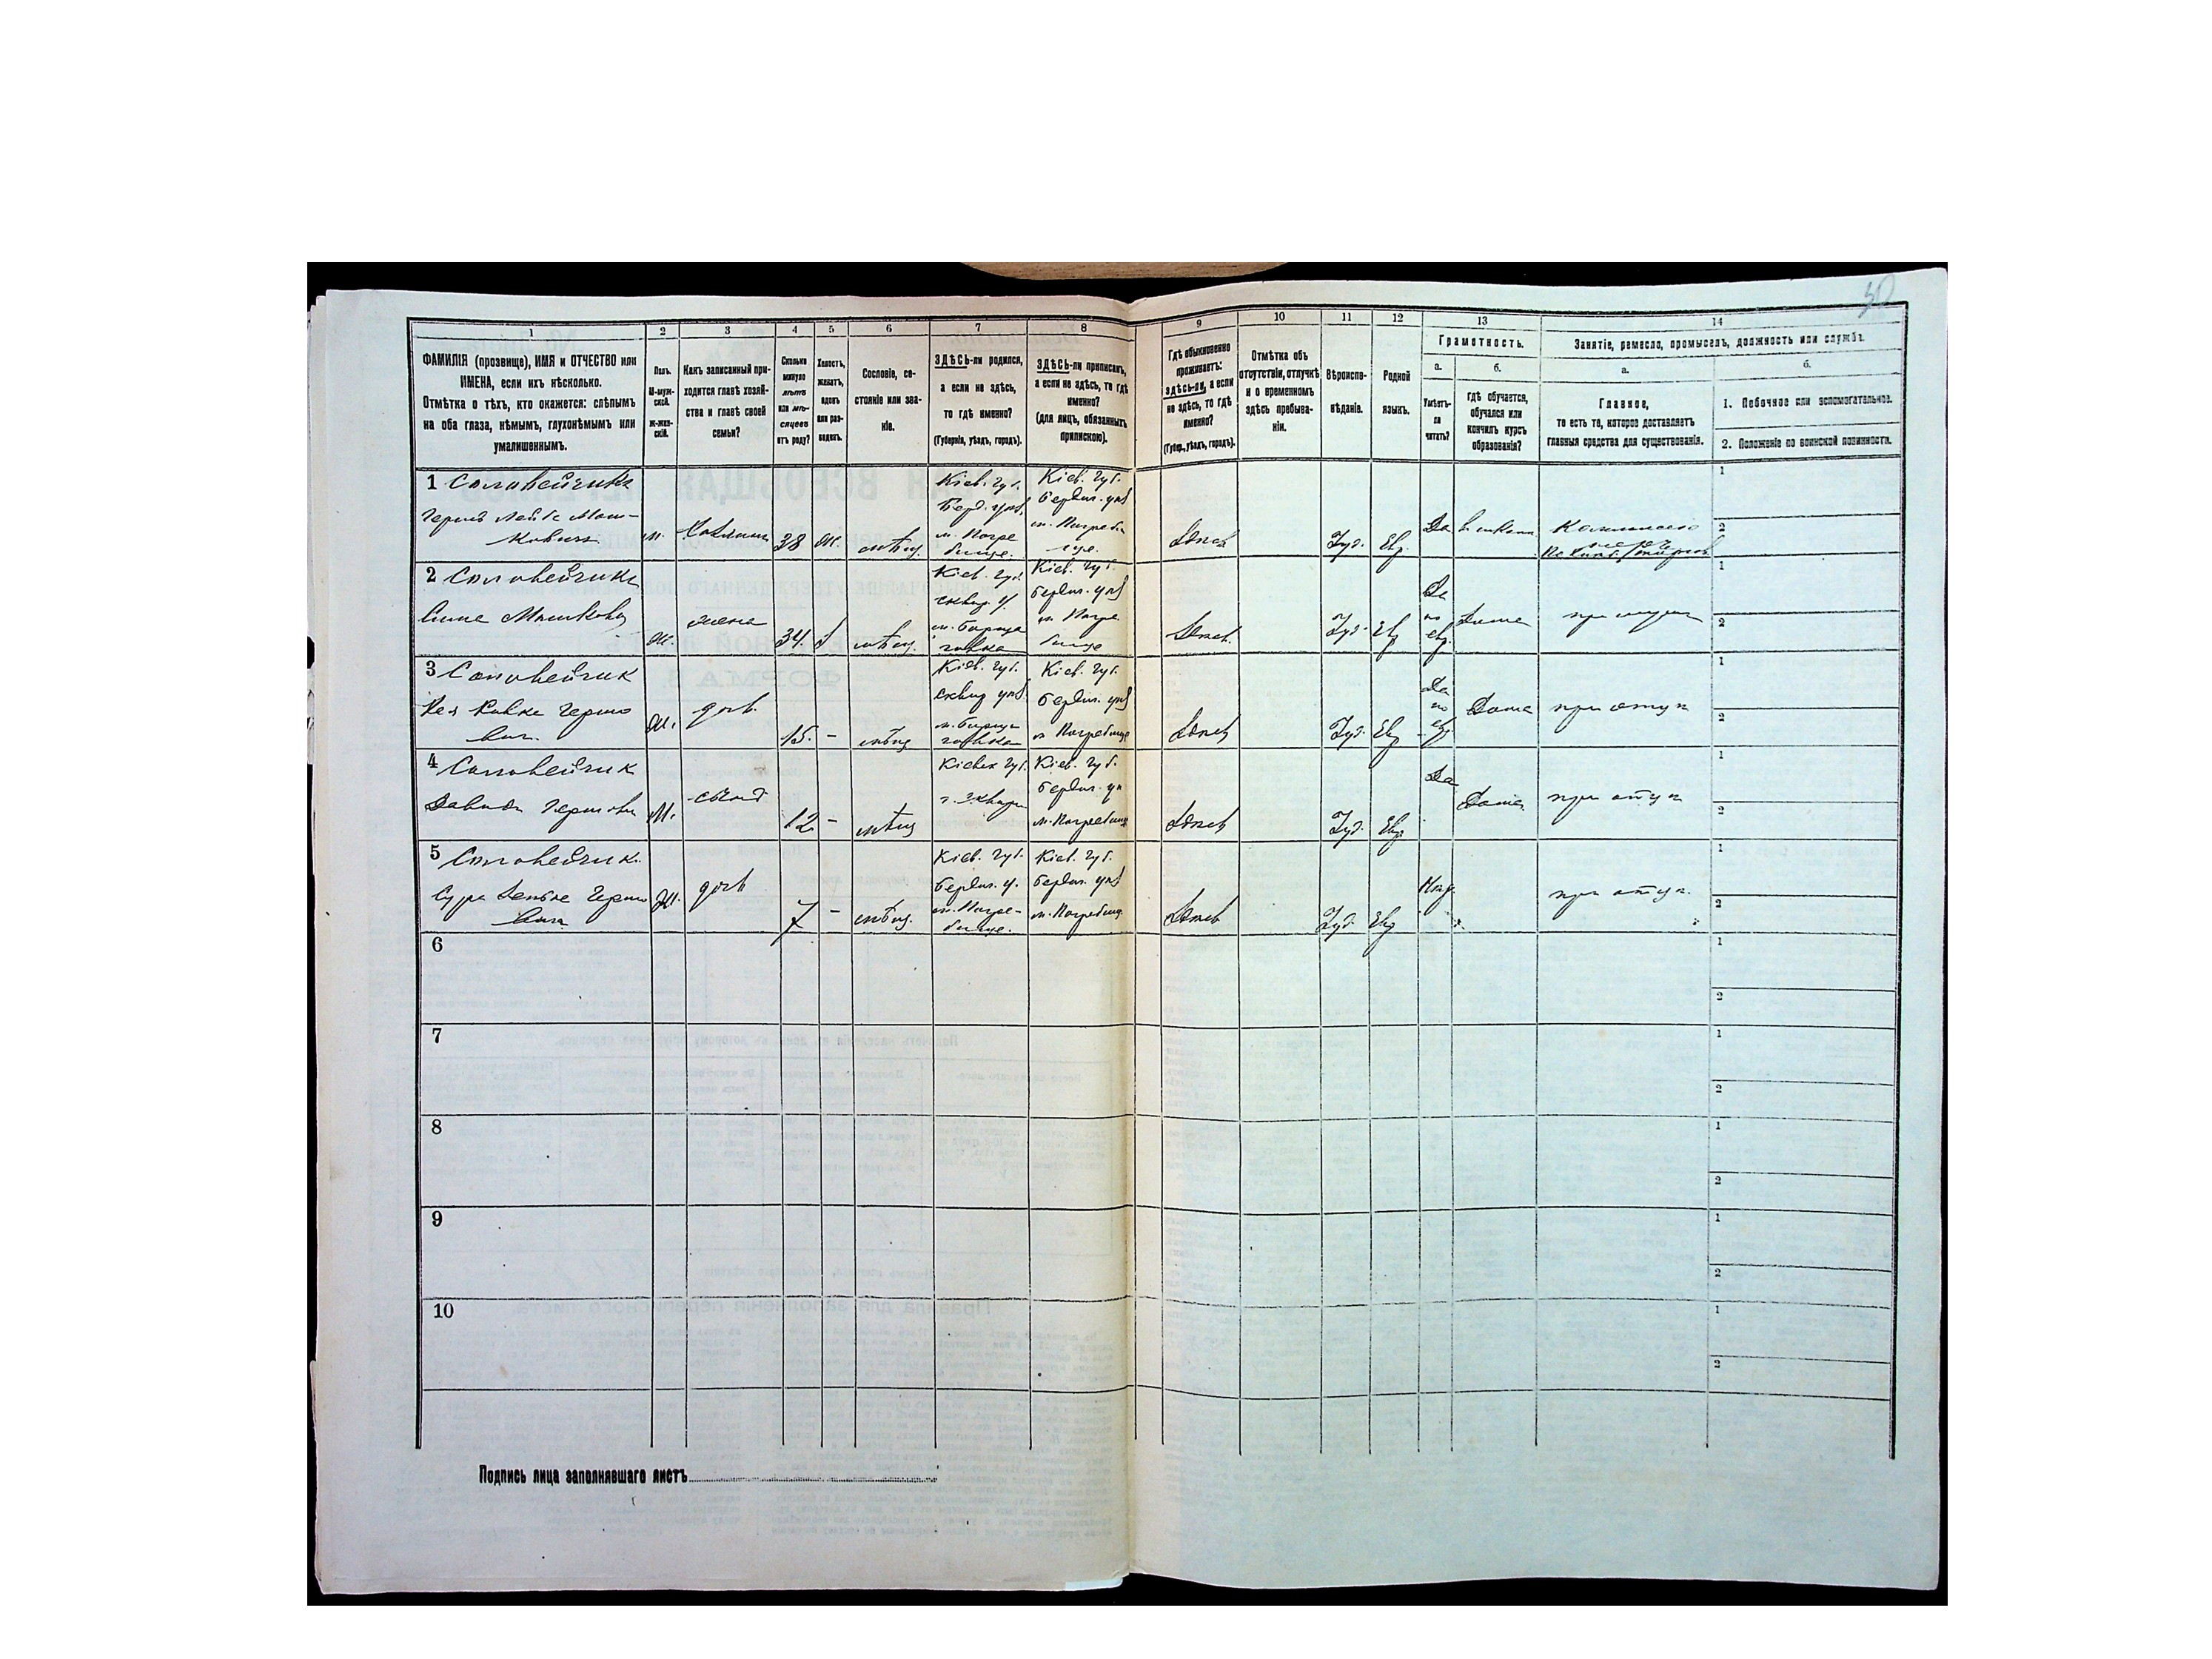 30
1 2 3 4 5 6 7 8 9 10 11 12 13 14
ФАМИЛІЯ (прозвище), ИМЯ и ОТЧЕСТВО или
ИМЕНА, если ихъ нѣсколько.
Отмѣтка о тѣхъ, кто окажется: слѣпымъ
на оба глаза, нѣмымъ, глухонѣмымъ или
умалишеннымъ.
Полъ.
М-муж-
ской.
Ж-жен-
скій.
Какъ записанный при-
ходится главѣ хозяй-
ства и главѣ своей
семьи?
Сколько
минуло
лѣтъ
или мѣ-
сяцевъ
отъ роду?
Холостъ,
женатъ,
вдовъ
или раз-
веденъ.
Сословіе, со-
стояніе или зва-
ніе.
ЗДѢСЬ-ли родился,
а если не здѣсь,
то гдѣ именно?
(Губернія, уѣздъ, городъ).
ЗДѢСЬ-ли приписанъ,
а если не здѣсь, то гдѣ
именно?
(для лицъ, обязанныхъ
припискою).
Гдѣ обыкновенно
проживаетъ:
здѣсь-ли, а если
не здѣсь, то гдѣ
именно?
(Губер., уѣздъ, городъ).
Отмѣтка объ
отсутствіи, отлучкѣ
и о временномъ
здѣсь пребыва-
ніи.
Вѣроиспо-
вѣданіе.
Родной
языкъ.
Грамотность.
а.
Умѣетъ-
ли
читать?
б.
Гдѣ обучается,
обучался или
кончилъ курсъ
образованія?
Занятіе, ремесло, промыселъ, должность или служба.
а.
Главное,
то есть то, которое доставляетъ
главныя средства для существованія.
б.
1. Побочное или вспомогательное.
2. Положеніе по воинской повинности.
1 Соловейчикъ
Гершъ Лейба Мош-
ковичъ
м. Хозяинъ 38 ж. мѣщ.
Кіев. губ.
Берд. уѣз.
м. Погре
бище.
Кіев. губ.
Бердич. уѣз
м. Погреби
ще.
Здѣсь Іуд. Евр. Да в школѣ
1
2
2 Соловейчикъ
Мошкова
ж. жена 34. з мѣщ.
Кіев. губ.
сквир. у.
Кіев. губ.
Бердич. уѣз
м Погре
бище
Здѣсь. Іуд. Евр
Да
по
евр.
Дома
1
2
3 Соловейчик
Ривка Герш
ж. доч. 15. - мѣщ
Кіев. губ.
сквир уѣз.
Кіев. губ.
Бердич. уѣз
м Погребище
Здѣсь Іуд. Евр
Да
по
евр
Дома при отцѣ
1
2
4 Соловейчик
Давидъ Гершков
М. сынъ 12 - мѣщ
Кіевск губ.
г. Сквира
Кіев. губ.
Бердич. уѣ
м. Погребище
Здѣсь Іуд. Евр. Да Дома при отцѣ
1
2
5 Соловейчик.
Сура
ж. доч 7 - мѣщ.
Кіев. губ.
Бердич. у.
м. Погре-
бище.
Кіев. губ.
Бердич. уѣз
м. Погребищ.
Здѣсь Іуд. Евр при отцѣ.
1
2
6
1
2
7
1
2
8
1
2
9
1
2
10
1
2
Подпись лица заполнявшаго листъ